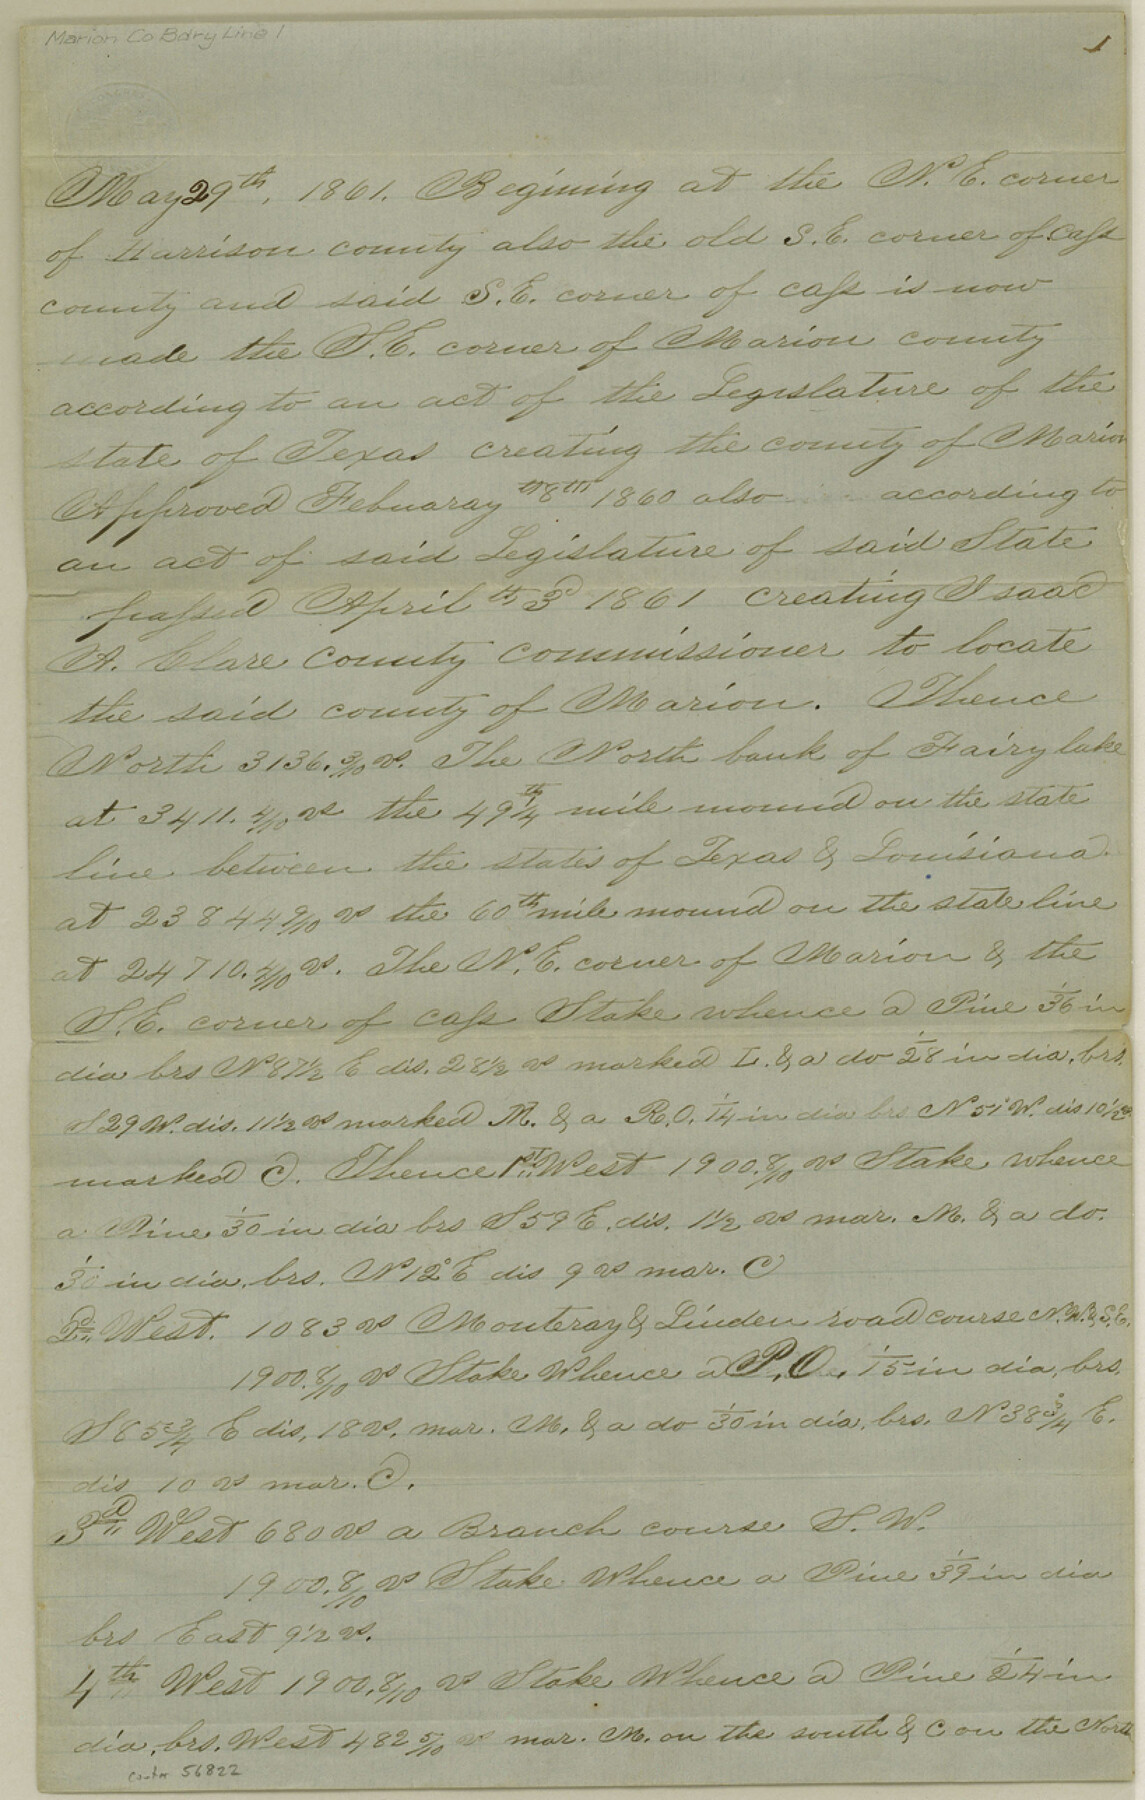 Marion Co Bdry Line 1
1
May 29th, 1861. Begining at the N. E. corner
of Harrison county also the old S. E. corner of Cass
county and said S. E. corner of Cass is now
made the S. E. corner of Marion county
according to an act of the Legislature of the
state of Texas creating the county of Marion
Approved Febuaray th 8th 1860 also according to
an act of said Legislature of said State
passed April th 3d 1861 creating Isaac
A. Clare county commissioner to locate
the said county of Marion. Thence
North 3136. 3/10 vs. The North bank of Fairy lake
at 3411. 4/10 vs the 49th 1/4 mile mound on the state
line between the states of Texas & Louisiana
at 23844 9/10 vs the 60th mile mound on the state line
at 24710. 4/10 vs. The N. E. corner of Marion & the
S. E. corner of Cass Stake whence a Pine 36 in
dia brs N 87 1/2 E dis. 28 1/2 vs marked L. & a do 28 in dia. brs.
S 29 W. dis. 11 1/2 vs marked M. & a R. O. 14 in dia brs N 51° W. dis 10 1/2 vs.
marked C. Thence 1st West 1900. 8/10 vs Stake whence
a Pine 30 in dia brs S 59 E. dis. 1 1/2 vs mar. M. & a do.
30 in dia. brs. N 12° E dis 9 vs mar. C
2d West. 1083 vs Monteray & Linden road course N. W. & S. E.
1900. 8/10 vs Stake Whence a P. O. 15 in dia, brs.
S 65 3/4 E dis, 18 vs. mar. M. & a do 30 in dia, brs. N 38 3/4 E.
dis 10 vs mar. C.
3d West 680 vs a Branch course S. W.
1900. 8/10 vs Stake Whence a Pine 39 in dia
brs East 9 1/2 vs.
4th West 1900. 8/10 vs Stake Whence a Pine 24 in
dia, brs. West 482 5/10 vs mar. M. on the south & C on the North
counter 56822